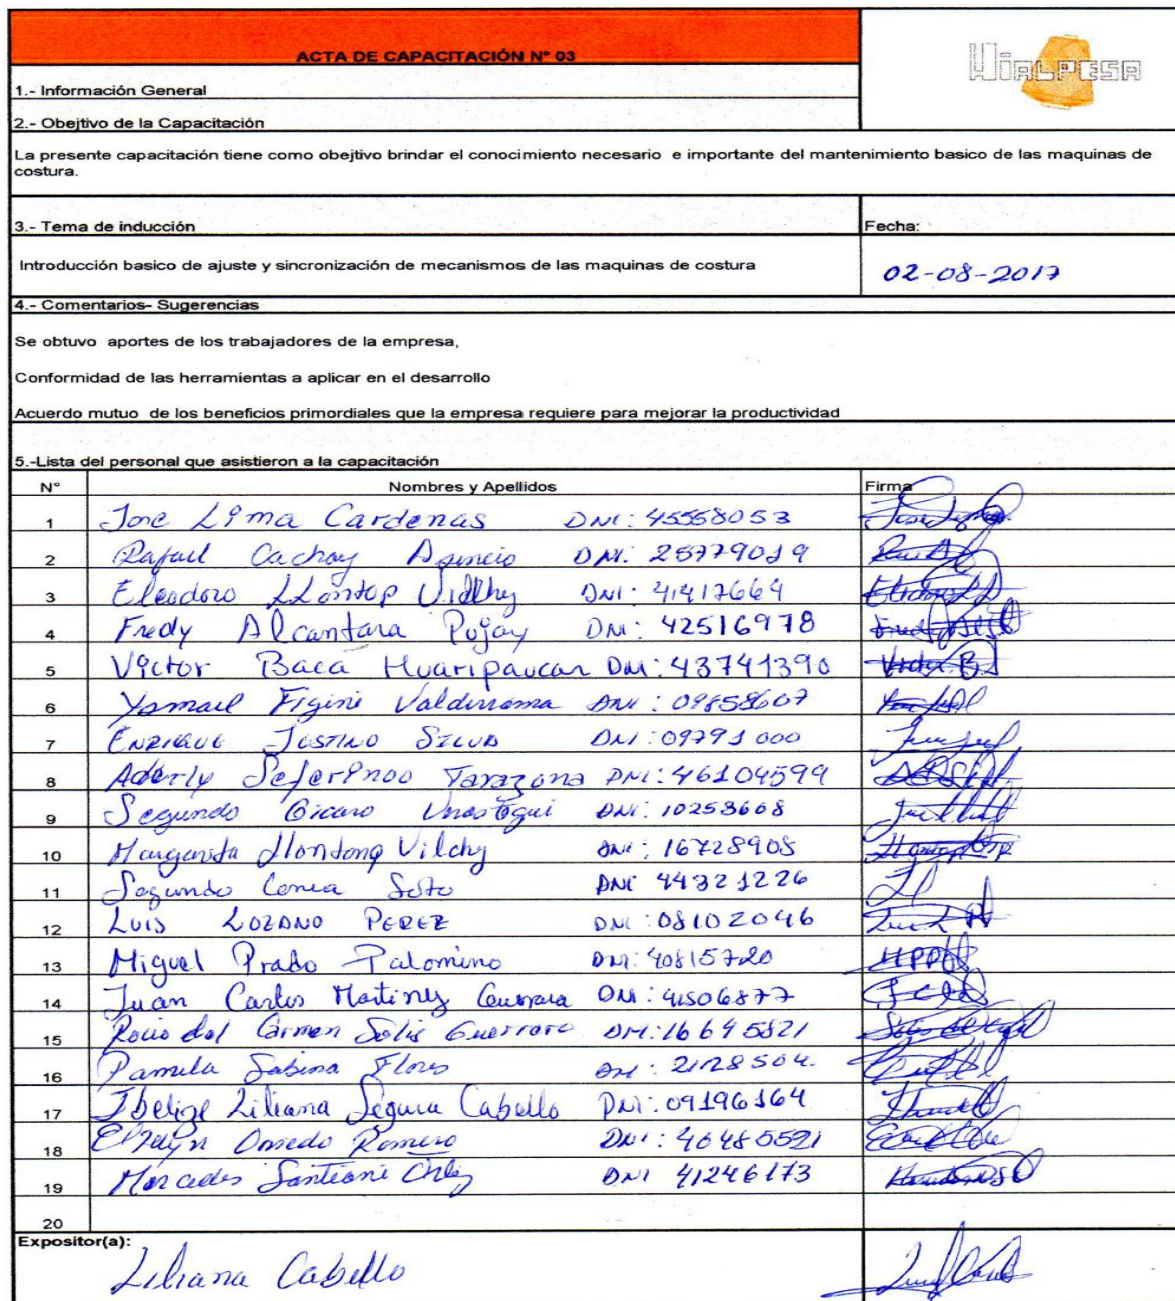 ACTA DE CAPACITACIÓN N° 03
HIALPESA
1.- Información General
2.- Obejtivo de la Capacitación
La presente capacitación tiene como obejtivo brindar el conocimiento necesario e importante del mantenimiento basico de las maquinas de
costura.
3.- Tema de inducción Fecha:
Introducción basico de ajuste y sincronización de mecanismos de las maquinas de costura 02-08-2017
4.- Comentarios- Sugerencias
Se obtuvo aportes de los trabajadores de la empresa,
Conformidad de las herramientas a aplicar en el desarrollo
Acuerdo mutuo de los beneficios primordiales que la empresa requiere para mejorar la productividad
5.-Lista del personal que asistieron a la capacitación
N° Nombres y Apellidos Firma
1 Jose Lima Cardenas DNI: 45558053
2 Rafael Cachay DNI: 25779019
3 Eleodoro LLontop DNI: 41417664
4 Fredy Alcantara Pojay DNI: 42516978
5 Victor Baca Huaripaucar DNI: 43741390
6 Ysmael Figini Valderrama DNI: 09858607
7 Enrique Justino Silva DNI: 09791000
8 Aderly Seferinoo Tarazona DNI: 46104599
9 Segundo DNI: 10253608
10 Margarita Vilchy DNI: 16728908
11 Segundo Correa Soto DNI 44321226
12 Luis Lozano Perez DNI: 08102046
13 Miguel Prado Palomino DNI: 40815720
14 Juan Carlos Martinez Guerrara DNI: 41506877
15 Rocio del Carmen Solis Guerrero DNI: 16645821
16 Pamela Sabina Flores DNI: 21128504.
17 Ibelize Liliana Segura Cabello DNI: 09196164
18 Romero DNI: 40485591
19 Mercedes Ortiz DNI 41246173
20
Expositor(a):
Liliana Cabello